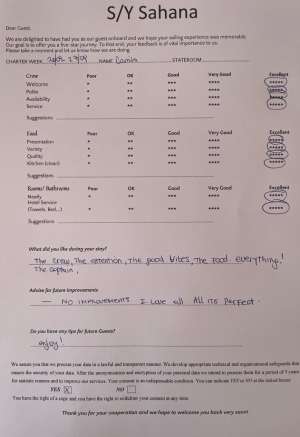 S/Y Sahana
Dear Guest,
We are delighted to have had you as our guest onboard and we hope your sailing experience was memorable.
Our goal is to offer you a five-star journey. To that end, your feedback is of vital importance to us.
Please take a moment and let us know how we are doing
CHARTER WEEK NAME STATEROOM
Crew Poor OK Good Very Good Excellent
Welcome * ** *** **** *****
Polite * ** *** **** *****
Availability * ** *** **** *****
Service * ** *** **** *****
Suggestions
Food Poor OK Good Very Good Excellent
Presentation * ** *** **** *****
Variety * ** *** **** *****
Quality * ** *** **** *****
Kitchen (clean) * ** *** **** *****
Suggestions
Rooms/ Bathrooms Poor OK Good Very Good Excellent
Neatly * ** *** **** *****
Hotel Service
(Towels, Bed...) * ** *** **** *****
Suggestions
What did you like during your stay?
The crew, The attention, The good vibes, The food everything!
The captain,
Advise for future improvements
— NO improvements I love all All its perfect.
Do you have any tips for future Guests?
enjoy!
We assure you that we process your data in a lawful and transparent manner. We develop appropriate technical and organizational safeguards that
ensure the security of your data. After the anonymization and encryption of your personal data we intend to process them for a period of 5 years
for statistic reasons and to improve our services. Your consent is an indispensable condition. You can indicate YES or NO at the related boxes
YES X NO
You have the right of a copy and you have the right to withdraw your consent at any time.
Thank you for your cooperation and we hope to welcome you back very soon!